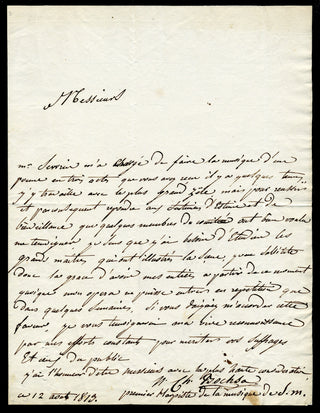 Messieurs
mr Sewrin m'a chargé de faire la musique d'une
poeme en trois actes que vous avez recu il y a quelques tems,
j'y travaille avec le plus grand zèle mais pour reussir
et par consequent repondre aux d'estime et de
bienveillance que quelques membres de ont bien voulu
me temoigner, je sens que j'ai besoin d'étudier les
grands maitres qui ont illustrés la scene, je sollicite
donc la grace d'avoir mes entrées, a partir de ce moment
quoique mon opera ne puisse entrer en repetition que
dans quelques semaines. Si vous daignez m'accorder cette
faveur, je vous temoignerai ma vive reconnaissance
par mes efforts constant pour meriter vos suffrages
Et ceux du public
j'ai l'honneur d'etre messieurs avec la plus haute consideration
N. Ch. Bochsa
ce 12 août 1813. premier Harpiste de la musique de s. m.